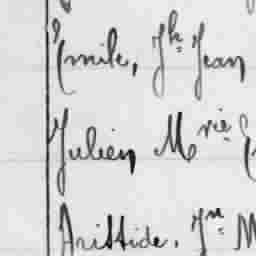 Emile, Jh Jean
Julien Mrie
Aristide, Jn M